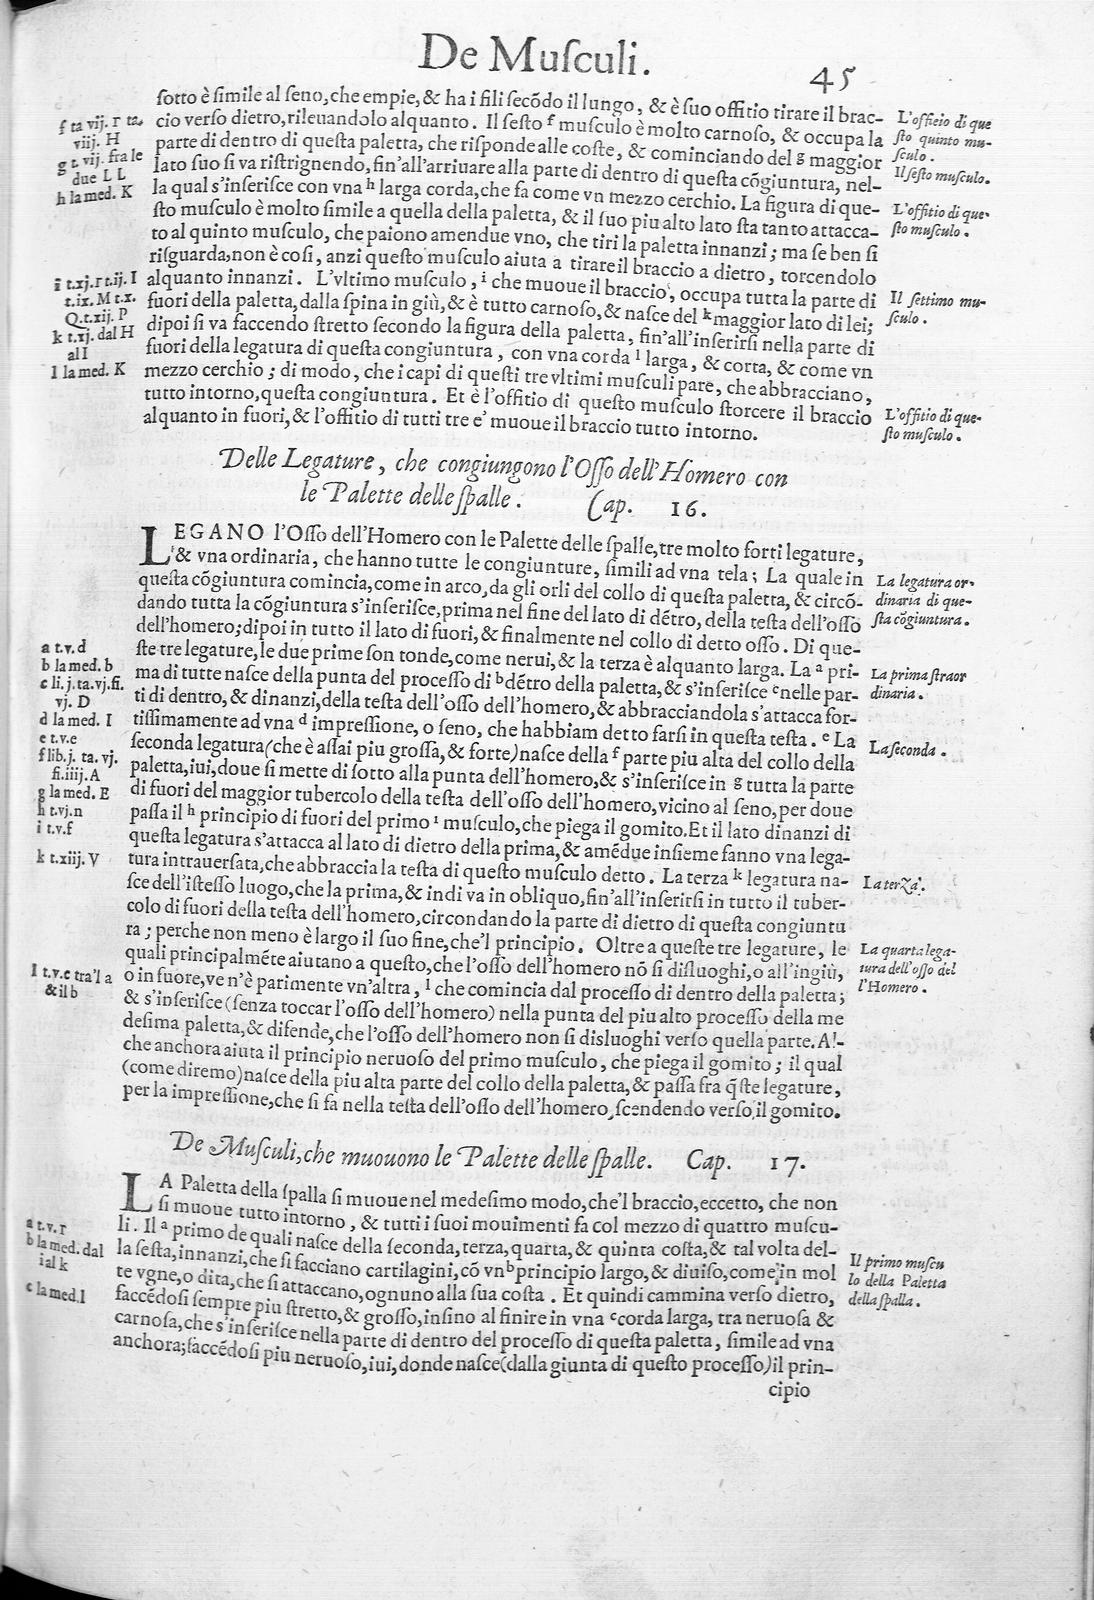 De Muſculi.
45
ſotto è ſimile al ſeno, che empie, & ha i fili ſecōdo il lungo, & è ſuo offitio tirare il brac-
cio verſo dietro, rileuandolo alquanto. Il ſeſto f muſculo è molto carnoſo, & occupa la
parte di dentro di queſta paletta, che riſponde alle coſte, & cominciando del g maggior
lato ſuo ſi va riſtrignendo, fin'all'arriuare alla parte di dentro di queſta cōgiuntura, nel-
la qual s'inferiſce con vna h larga corda, che fa come vn mezzo cerchio. La figura di que-
ſto muſculo è molto ſimile a quella della paletta, & il ſuo piu alto lato ſta tanto attacca-
to al quinto muſculo, che paiono amendue vno, che tiri la paletta innanzi; ma ſe ben ſi
riſguarda, non è coſi, anzi queſto muſculo aiuta a tirare il braccio a dietro, torcendolo
alquanto innanzi. L'vltimo muſculo, i che muoue il braccio, occupa tutta la parte di
fuori della paletta, dalla ſpina in giù, & è tutto carnoſo, & naſce del k maggior lato di lei;
dipoi ſi va faccendo ſtretto ſecondo la figura della paletta, fin'all'inſerirſi nella parte di
fuori della legatura di queſta congiuntura, con vna corda l larga, & corta, & come vn
mezzo cerchio; di modo, che i capi di queſti tre vltimi muſculi pare, che abbracciano,
tutto intorno, queſta congiuntura. Et è l'offitio di queſto muſculo ſtorcere il braccio
alquanto in fuori, & l'offitio di tutti tre e' muoue il braccio tutto intorno.
f ta vij. r ta.
viij. H
g t. vij. fra le
due L L
h la med. K
i t.xj. r t.ij. I
t.ix. M t.x.
Q t.xij. P
k t.xj. dal H
al I
l la med. K
L'officio di que
ſto quinto mu-
ſculo.
Il ſeſto muſculo.
L'offitio di que-
ſto muſculo.
Il ſettimo mu-
ſculo.
L'offitio di que-
ſto muſculo.
Delle Legature, che congiungono l'Oſſo dell'Homero con
le Palette delle ſpalle. Cap. 16.
LEGANO l'Oſſo dell'Homero con le Palette delle ſpalle, tre molto forti legature,
& vna ordinaria, che hanno tutte le congiunture, ſimili ad vna tela; La quale in
queſta cōgiuntura comincia, come in arco, da gli orli del collo di queſta paletta, & circō-
dando tutta la cōgiuntura s'inſeriſce, prima nel fine del lato di dētro, della teſta dell'oſſo
dell'homero; dipoi in tutto il lato di fuori, & finalmente nel collo di detto oſſo. Di que-
ſte tre legature, le due prime ſon tonde, come nerui, & la terza è alquanto larga. La a pri-
ma di tutte naſce della punta del proceſſo di b dētro della paletta, & s'inſeriſce c nelle par-
ti di dentro, & dinanzi, della teſta dell'oſſo dell'homero, & abbracciandola s'attacca for-
tiſſimamente ad vna d impreſſione, o ſeno, che habbiam detto farſi in queſta teſta. e La
ſeconda legatura (che è aſſai piu groſſa, & forte) naſce della f parte piu alta del collo della
paletta, iui, doue ſi mette di ſotto alla punta dell'homero, & s'inſeriſce in g tutta la parte
di fuori del maggior tubercolo della teſta dell'oſſo dell'homero, vicino al ſeno, per doue
paſſa il h principio di fuori del primo i muſculo, che piega il gomito. Et il lato dinanzi di
queſta legatura s'attacca al lato di dietro della prima, & amēdue inſieme fanno vna lega-
tura intrauerſata, che abbraccia la teſta di queſto muſculo detto. La terza k legatura na-
ſce dell'iſteſſo luogo, che la prima, & indi va in obliquo, fin'all'inſerirſi in tutto il tuber-
colo di fuori della teſta dell'homero, circondando la parte di dietro di queſta congiuntu
ra; perche non meno è largo il ſuo fine, che'l principio. Oltre a queſte tre legature, le
quali principalmēte aiutano a queſto, che l'oſſo dell'homero nō ſi diſluoghi, o all'ingiù,
o in fuore, ve n'è parimente vn'altra, l che comincia dal proceſſo di dentro della paletta;
& s'inſeriſce (ſenza toccar l'oſſo dell'homero) nella punta del piu alto proceſſo della me
deſima paletta, & difende, che l'oſſo dell'homero non ſi disluoghi verſo quella parte. Al-
che anchora aiuta il principio neruoſo del primo muſculo, che piega il gomito; il qual
(come diremo) naſce della piu alta parte del collo della paletta, & paſſa fra q̄ſte legature,
per la impreſſione, che ſi fa nella teſta dell'oſſo dell'homero, ſcendendo verſo, il gomito.
a t.v. d
b la med. b
c li. j. ta. vj. fi.
vj. D
d la med. I
e t.v. e
f lib. j. ta. vj.
fi. iiij. A
g la med. E
h t.vj. n
i t.v. f
k t.xiij. V
l t.v.c tra'l a
& il b
La legatura or-
dinaria di que-
ſta cōgiuntura.
La prima ſtraor
dinaria.
La ſeconda.
La terza.
La quarta lega-
tura dell'oſſo del
l'Homero.
De Muſculi, che muouono le Palette delle ſpalle. Cap. 17.
LA Paletta della ſpalla ſi muoue nel medeſimo modo, che'l braccio, eccetto, che non
ſi muoue tutto intorno, & tutti i ſuoi mouimenti fa col mezzo di quattro muſcu-
li. Il a primo de quali naſce della ſeconda, terza, quarta, & quinta coſta, & tal volta del-
la ſeſta, innanzi, che ſi facciano cartilagini, cō vn b principio largo, & diuiſo, come in mol
te vgne, o dita, che ſi attaccano, ognuno alla ſua coſta. Et quindi cammina verſo dietro,
faccēdoſi ſempre piu ſtretto, & groſſo, inſino al finire in vna c corda larga, tra neruoſa &
carnoſa, che s'inſeriſce nella parte di dentro del proceſſo di queſta paletta, ſimile ad vna
anchora; faccēdoſi piu neruoſo, iui, donde naſce (dalla giunta di queſto proceſſo) il prin-
cipio
a t.v. r
b la med. dal
i al k
c la med. l
Il primo muſcu
lo della Paletta
della ſpalla.